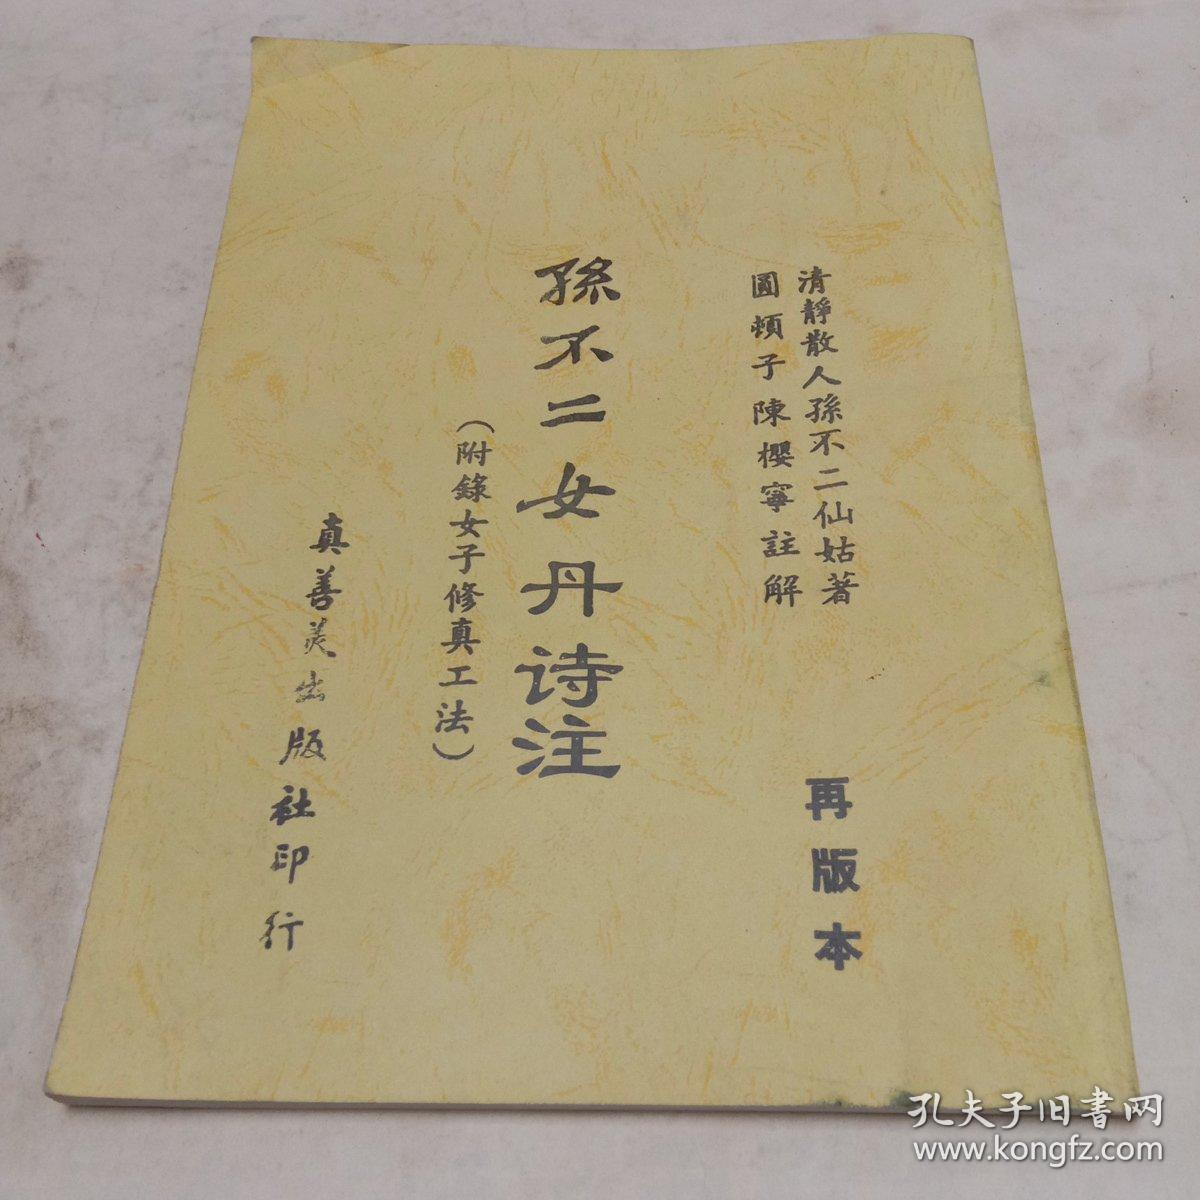 清靜散人孫不二仙姑著
圓頓子陳櫻寧註解
再版本
孫不二女丹诗注
（附錄女子修真工法）
真善美出版社印行
孔夫子旧書网
www.kongfz.com